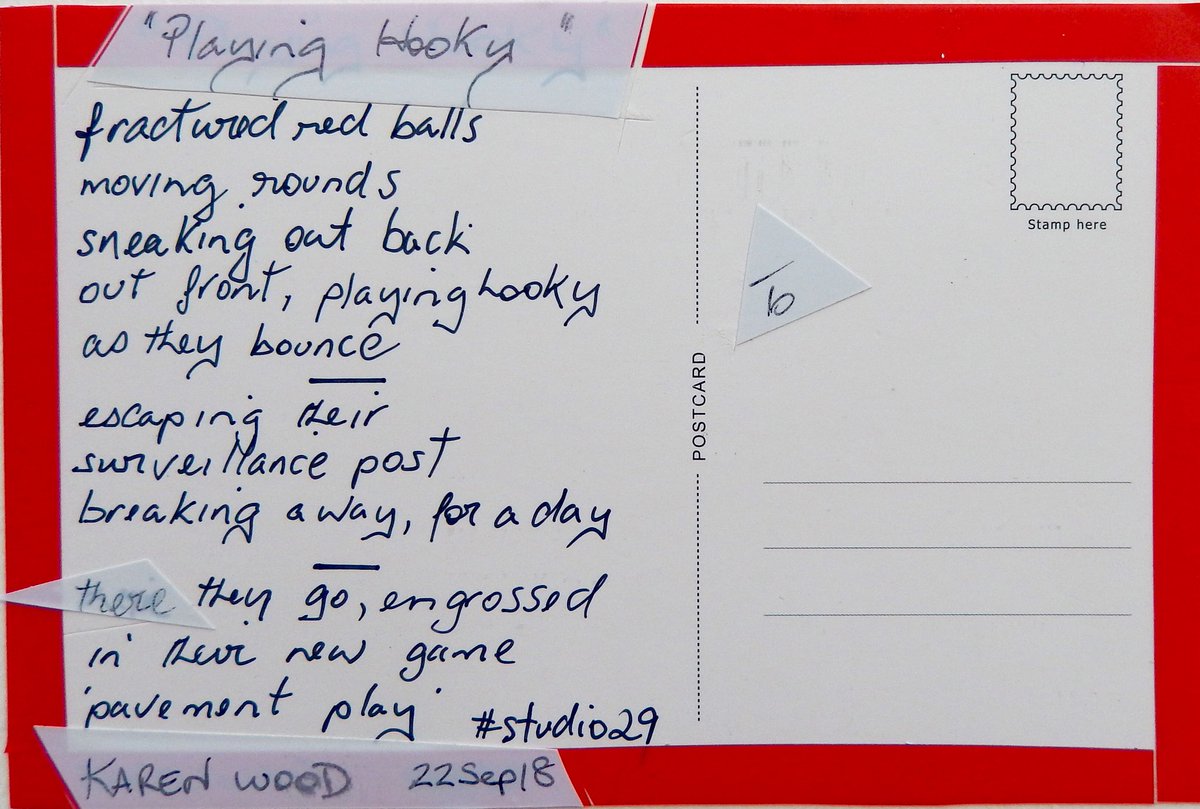 "Playing Hooky"
fractured red balls
moving rounds
sneaking out back
out front, playing hooky
as they bounce
escaping their
surveillance post
breaking away, for a day
there they go, engrossed
in their new game
pavement play
#studio29
KAREN WOOD 22Sep18
POSTCARD
Stamp here
To